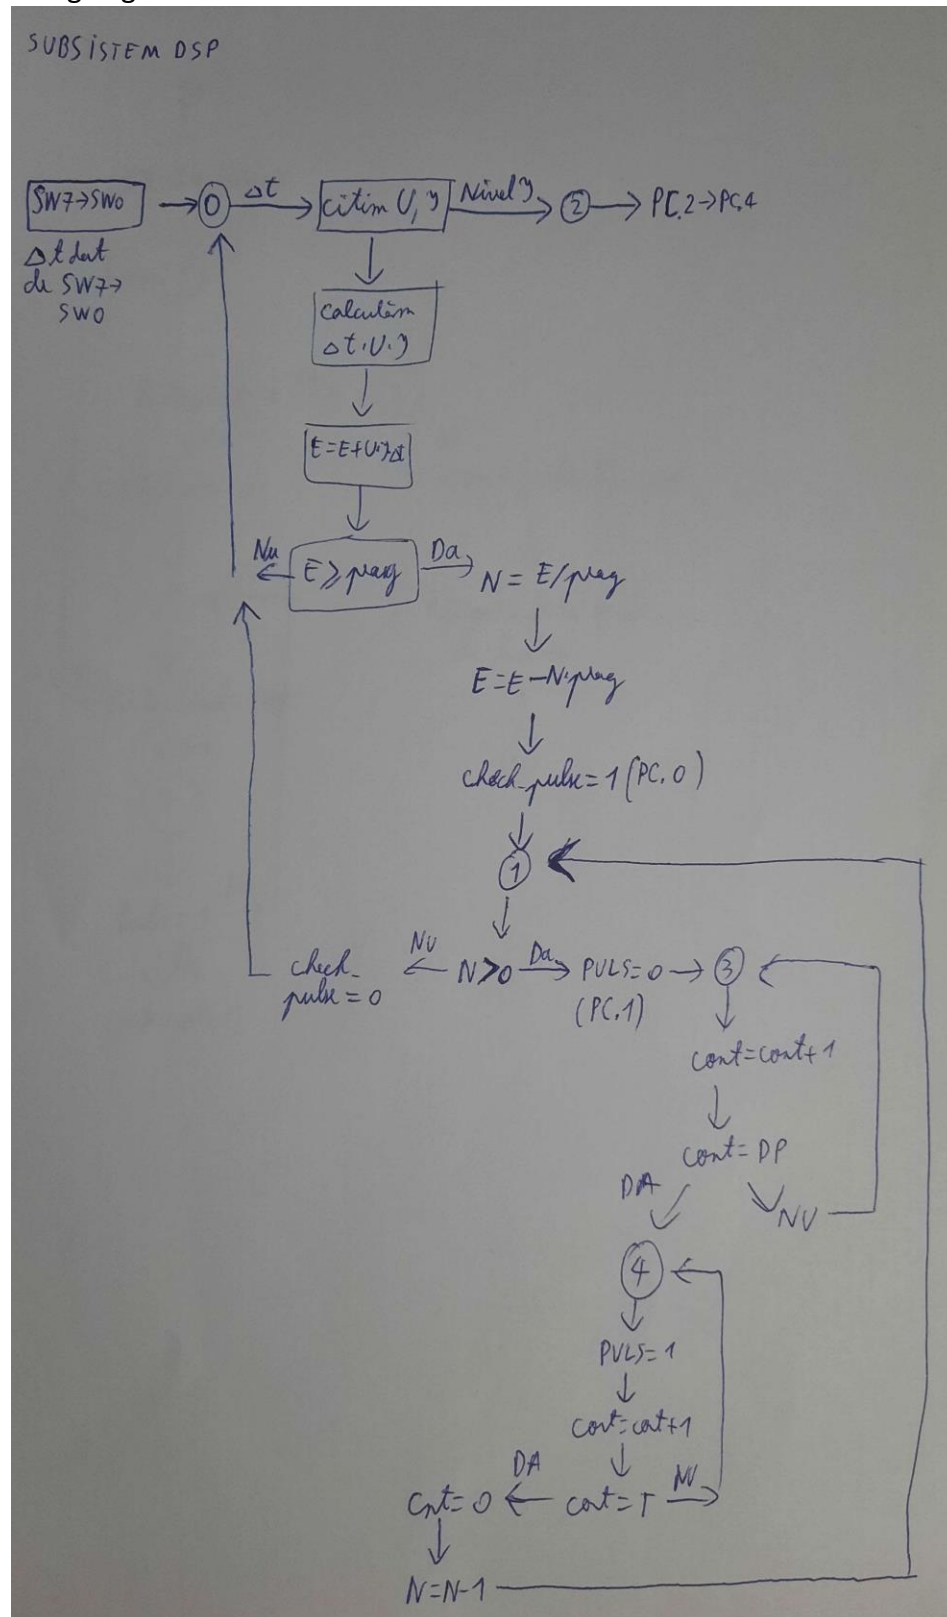 SUBSISTEM DSP
SW7→SW0
0
Δt
citim U, I
Nivel I
2
PC.2→PC.4
Δt dat
de SW7→
SW0
calculăm
Δt.U.I
E=E+U.I.Δt
Nu
E≥prag
Da
N = E/prag
E=E-N.prag
check_pulse=1 (PC.0)
1
check_
pulse=0
Nu
N>0
Da
PULS=0
3
(PC.1)
cont=cont+1
cont=DP
DA
NU
4
PULS=1
cont=cont+1
DA
NU
Cnt=0
cont=T
N=N-1